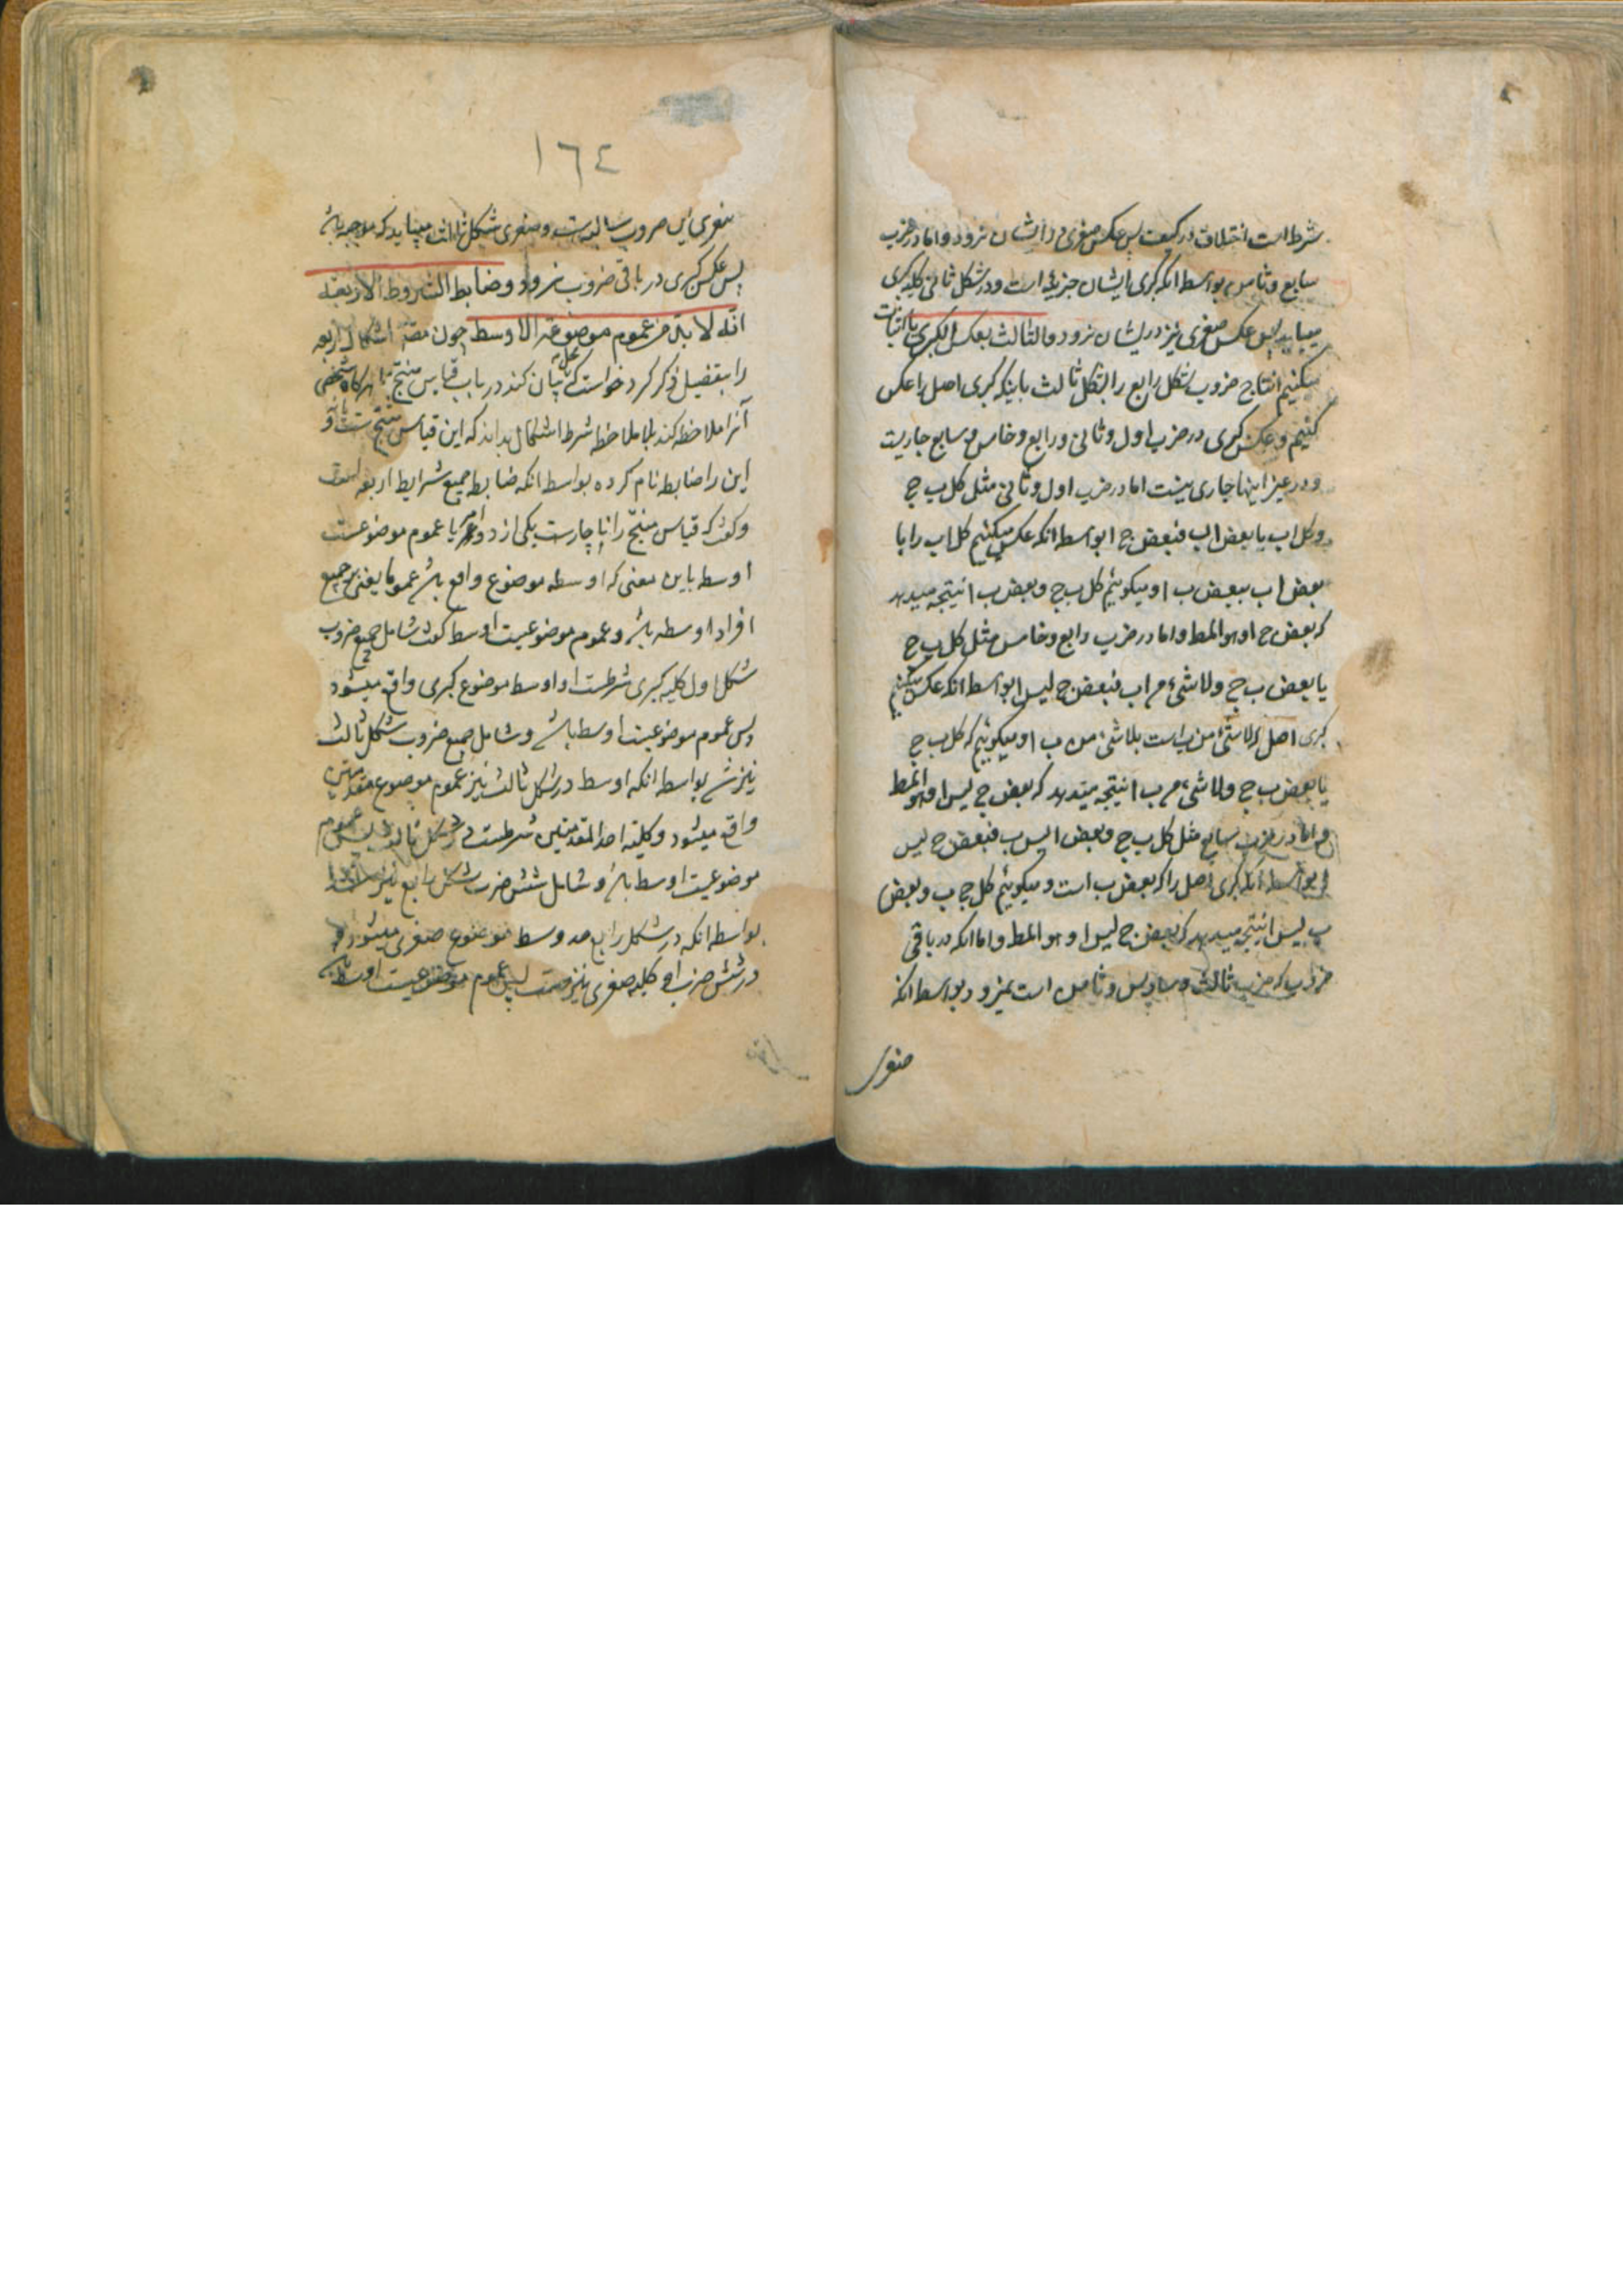 شرط است اختلاف در کیف پس عکس صغری در ایشان نرود و اما در ضرب
سابع و ثامن بواسطه انکه کبری ایشان جزئیه است و در شکل ثانی کلیه کبری
میباید پس عکس صغری نیز در ایشان نرود و الثالث بعکس الکبری یا اثبات
میکنیم انتاج ضروب شکل رابع را بشکل ثالث باینکه کبری اصل را عکس
کنیم و عکس کبری در ضرب اول و ثانی و رابع و خامس و سابع جاریست
و در غیر اینها جاری نیست اما در ضرب اول و ثانی مثل کل ب ج
و کل اب یا بعض اب فبعض ج ا بواسطه انکه عکس میکنیم کل اب را یا
بعض اب ببعض ب ا و میکوئیم کل ب ج و بعض ب ا نتیجه میدهد
که بعض ج ا و هو المط و اما در ضرب رابع و خامس مثل کل ب ج
یا بعض ب ج و لا شیء من اب فبعض ج لیس ا بواسطه انکه عکس میکنیم
کبری اصل که لا شیء من اب است بلا شیء من ب ا و میکوئیم که کل ب ج
یا بعض ب ج و لا شیء من ب ا نتیجه میدهد که بعض ج لیس ا و هو المط
و اما در ضرب سابع مثل کل ب ج و بعض ا لیس ب فبعض ج لیس
ا بواسطه انکه کبری اصل را که بعض ب است و میکوئیم کل ج ب و بعض
ب لیس ا نتیجه میدهد که بعض ج لیس ا و هو المط و اما انکه در باقی
ضروب که ضرب ثالث و سادس و ثامن است نمیرود بواسطه انکه
صغری
١٦٤
صغری این ضروب سالبه است و صغری شکل ثالث میباید که موجبه باشد
پس عکس کبری در باقی ضروب نرود و ضابط الشروط الاربعة
انه لا بد من عموم موضوعیة الاوسط چون مص اشکال اربعه
را بتفصیل ذکر کرد خواست که بیان کند در باب قیاس منتج تا هر کاه شخصی
آنرا ملاحظه کند بلا ملاحظه شرط اشکال بداند که این قیاس منتج است یا نه و
این را ضابطه نام کرده بواسطه انکه ضابط جمیع شرایط اربعه است
و کفت که قیاس منتج را ناچارست یکی از دو امر یا عموم موضوعیت
اوسط باین معنی که اوسط موضوع واقع باشد عموما یعنی بر جمیع
افراد اوسط باشد و عموم موضوعیت اوسط کفت شامل جمیع ضروب
شکل اول کلیه کبری شرطست و اوسط موضوع کبری واقع میشود
پس عموم موضوعیت اوسط باشد و شامل جمیع ضروب شکل ثالث
نیز شد بواسطه انکه اوسط در شکل ثالث نیز عموم موضوع مقدمتین
واقع میشود و کلیه احد المقدمتین شرطست در شکل ثالث پس عموم
موضوعیت اوسط باشد و شامل شش ضرب شکل رابع نیز
بواسطه انکه در شکل رابع حد وسط موضوع صغری میشود و
در شش ضرب او کلیه صغری نیز هست پس عموم موضوعیت اوسط